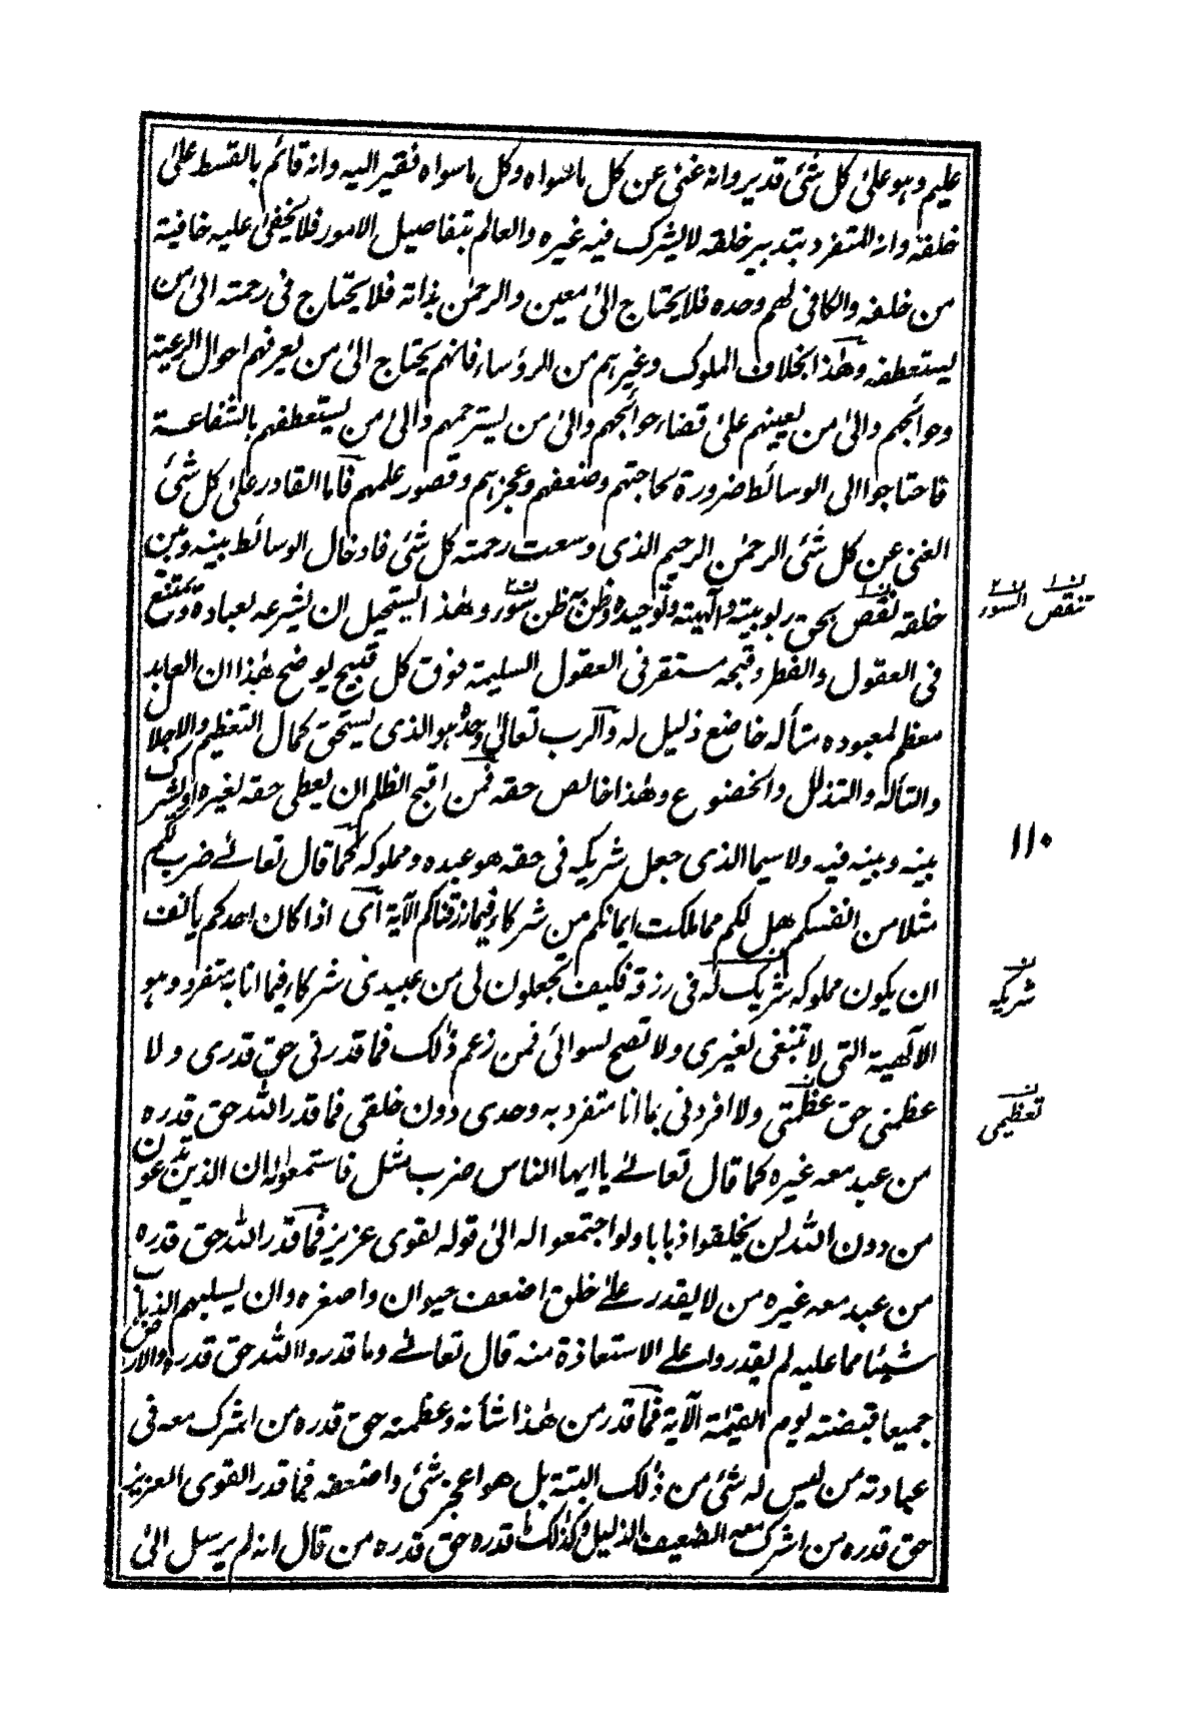 عليم وهو على كل شئ قدير وانه غنى عن كل ما سواه وكل ما سواه فقير اليه وانه قائم بالقسط على
خلقه وانه المتفرد بتدبير خلقه لا يشرك فيه غيره والعالم بتفاصيل الامور فلا يخفى عليه خافية
من خلقه والكافى لهم وحده فلا يحتاج الى معين والرحمن بذاته فلا يحتاج فى رحمته الى من
يستعطفه وهذا بخلاف الملوك وغيرهم من الرؤساء فانهم يحتاج الى من يعرفهم احوال الرعية
وحوائجهم والى من يعينهم على قضاء حوائجهم والى من يسترحمهم والى من يستعطفهم بالشفاعة
فاحتاجوا الى الوسائط ضرورة لحاجتهم وضعفهم وعجزهم وقصور علمهم فاما القادر على كل شئ
الغنى عن كل شئ الرحمن الرحيم الذى وسعت رحمته كل شئ فادخال الوسائط بينه وبين
خلقه نقص بحق ربوبيته والهيته وتوحيده وظن به ظن سور وهذا يستحيل ان يشرعه لعباده ويمتنع
فى العقول والفطر وقبحه مستقر فى العقول السليمة فوق كل قبيح يوضح هذا ان العابد
معظم لمعبوده متأله خاضع ذليل له والرب تعالى وحده هو الذى يستحق كمال التعظيم والاجلال
والتأله والتذلل والخضوع وهذا خالص حقه فمن اقبح الظلم ان يعطى حقه لغيره او يشرك
بينه وبينه فيه ولا سيما الذى جعل شريكه فى حقه هو عبده ومملوكه كما قال تعالى ضرب لكم
مثلا من انفسكم هل لكم مما ملكت ايمانكم من شركاء فيما رزقناكم الآية اى اذا كان احدكم يأنف
ان يكون مملوكه شريك له فى رزقه فكيف تجعلون لى من عبيدى شركاء فيما انا به متفرد وهو
الالهية التى لا تنبغى لغيرى ولا تصح لسوائى فمن زعم ذلك فما قدرنى حق قدرى ولا
عظمنى حق عظمتى ولا افردنى بما انا متفرد به وحدى دون خلقى فما قدر الله حق قدره
من عبد معه غيره كما قال تعالى يا ايها الناس ضرب مثل فاستمعوا له ان الذين تدعون
من دون الله لن يخلقوا ذبابا ولو اجتمعوا له الى قوله لقوى عزيز فما قدر الله حق قدره
من عبد معه غيره من لا يقدر على خلق اضعف حيوان واصغره وان يسلبهم الذباب
شيئا مما عليه لم يقدروا على الاستعاذة منه قال تعالى وما قدروا الله حق قدره والارض
جميعا قبضته يوم القيمة الآية فما قدر من هذا شأنه وعظمته حق قدره من اشرك معه فى
عبادته من ليس له شئ من ذلك البتة بل هو اعجز شئ واضعفه فما قدر القوى العزيز
حق قدره من اشرك معه الضعيف الذليل وكذلك ما قدره حق قدره من قال انه لم يرسل الى
تنقص السور
١١٠
شريكه
تعظيمى